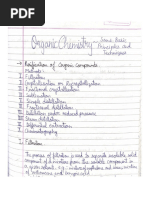 Organic Chemistry - Some Basic
Principles and
Techniques
→ Purification of Organic Compounds
Methods:
I Filtration
II Crystallisation or Recrystallisation
III Fractional crystallisation
IV Sublimation
V Simple distillation
VI Fractional distillation
VII Distillation under reduced pressure
VIII Steam distillation
IX Differential extraction
X Chromatography
I. Filtration
The process of filtration is used to separate insoluble solid
component of a mixture from the soluble component in
a given solvent.